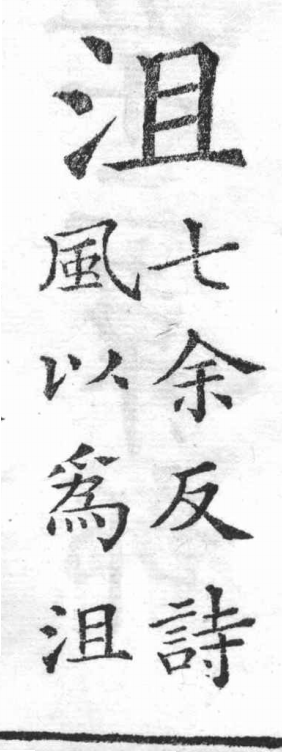 沮
七余反詩
風以為沮